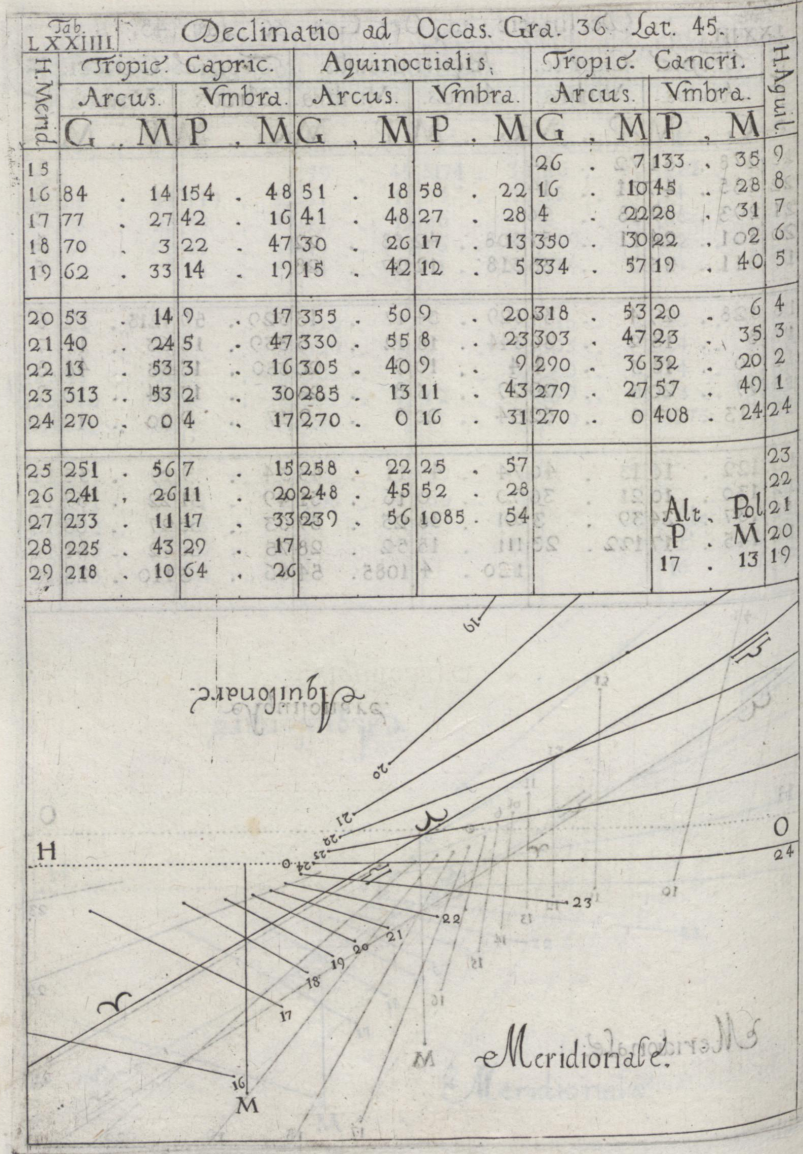 Tab. LXXIIII Declinatio ad Occas. Gra. 36 Lat. 45.
H. Merid. Tropic. Capric. Aquinoctialis. Tropic. Cancri. H. Aquil.
Arcus. Vmbra. Arcus. Vmbra. Arcus. Vmbra.
G . M P . M G . M P . M G . M P . M
15 26 . 7 133 . 35 9
16 84 . 14 154 . 48 51 . 18 58 . 22 16 . 10 45 . 28 8
17 77 . 27 42 . 16 41 . 48 27 . 28 4 . 22 28 . 31 7
18 70 . 3 22 . 47 30 . 26 17 . 13 350 . 30 22 . 2 6
19 62 . 33 14 . 19 15 . 42 12 . 5 334 . 57 19 . 40 5
20 53 . 14 9 . 17 355 . 50 9 . 20 318 . 53 20 . 6 4
21 40 . 24 5 . 47 330 . 55 8 . 23 303 . 47 23 . 35 3
22 13 . 53 3 . 16 305 . 40 9 . 9 290 . 36 32 . 20 2
23 313 . 53 2 . 30 285 . 13 11 . 43 279 . 27 57 . 49 1
24 270 . 0 4 . 17 270 . 0 16 . 31 270 . 0 408 . 24 24
25 251 . 56 7 . 15 258 . 22 25 . 57 23
26 241 . 26 11 . 20 248 . 45 52 . 28 22
27 233 . 11 17 . 33 239 . 56 1085 . 54 Alt. Pol 21
28 225 . 43 29 . 17 P . M 20
29 218 . 10 64 . 26 17 . 13 19
19
♎
Aquilonare.
20
21
22
♈
23
H O O
24 24
♎
23
22
21
20
19
18
17
♈
16
M
Meridionale.